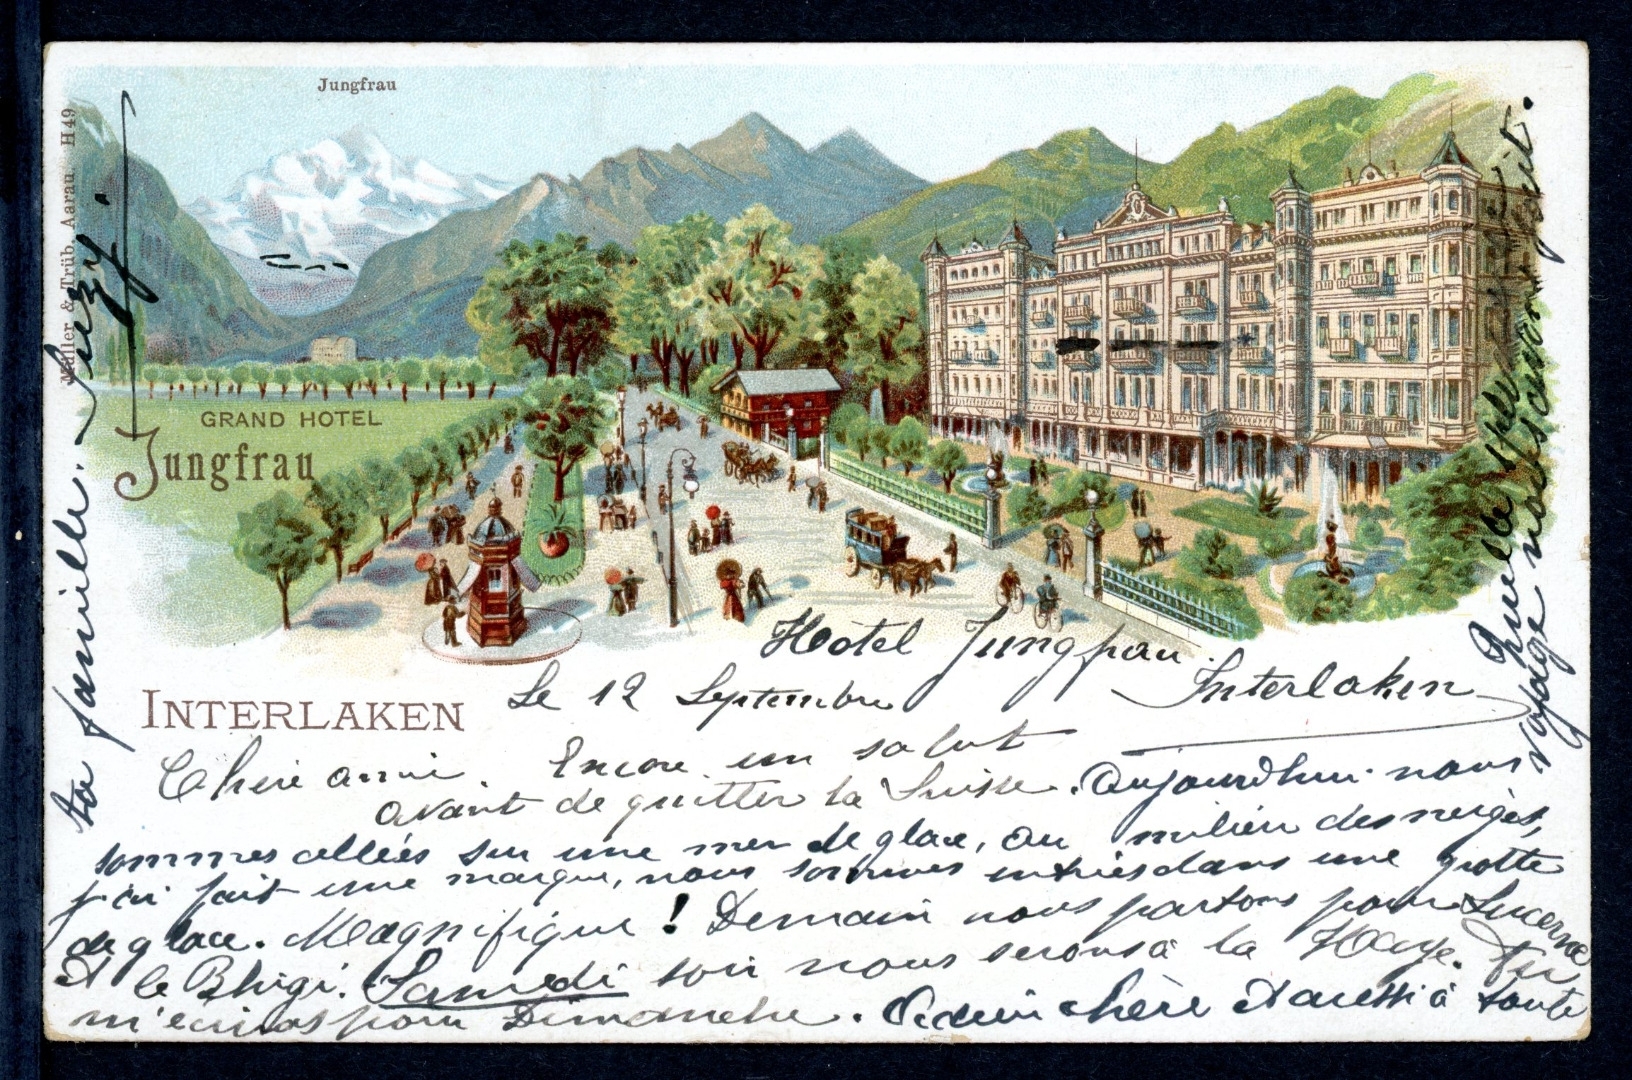 Jungfrau
Müller & Trüb, Aarau. H49
GRAND HOTEL
Jungfrau
INTERLAKEN
Hôtel Jungfrau.
Le 12 Septembre Interlaken
Chère amie. Encore un salut
avant de quitter la Suisse. Aujourd'hui nous
sommes allées sur une mer de glace, au milieu des neiges,
j'ai fait une marque, nous sommes entriés dans une grotte
de glace. Magnifique! Demain nous partons pour Lucerne
et le Rhigi. Samedi soir nous serons à la Haye. Tu
m'écriras pour Dimanche. Adieu chère et aussi à toute
ta famille. Suzy.
Quelle belle
voyage nous avons fait.